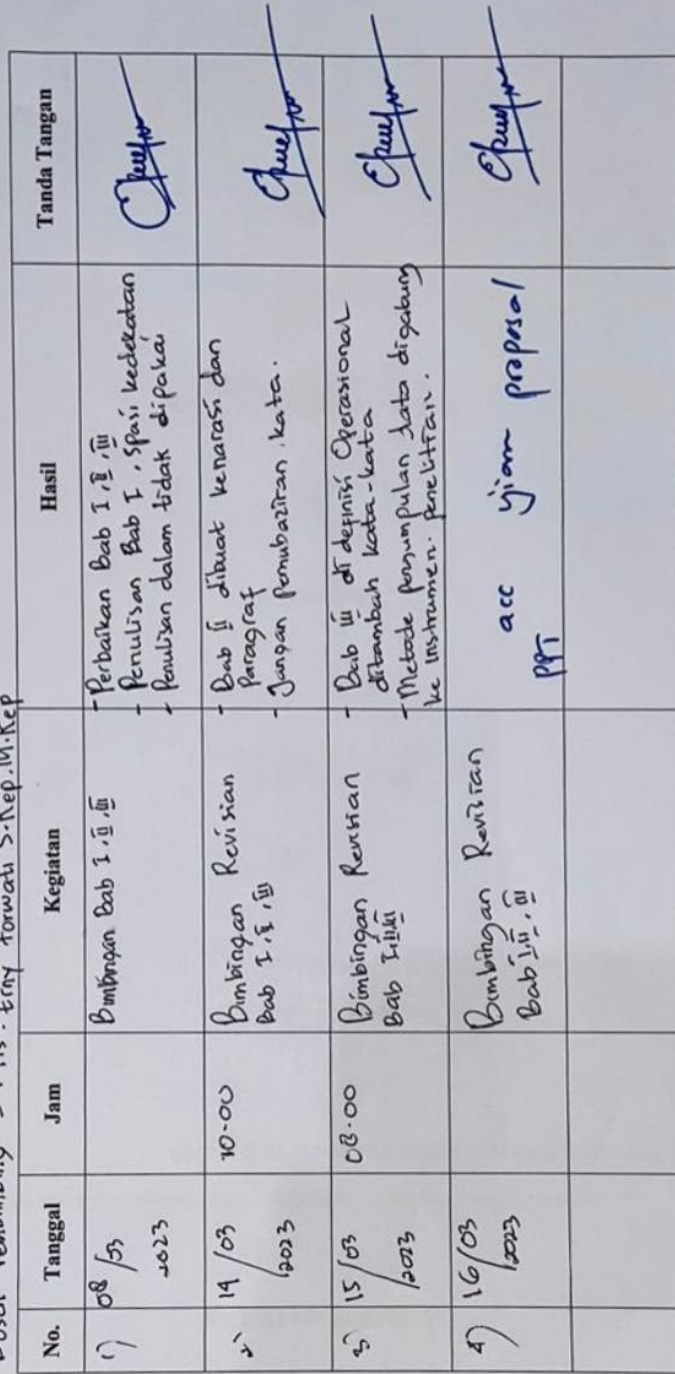 Dosen Pembimbing 2 : Ns. Erny Forwati S.Kep.M.Kep
No. Tanggal Jam Kegiatan Hasil Tanda Tangan
1) 08/03 2023
Bimbingan Bab I, II, III
- Perbaikan Bab I, II, III
- Penulisan Bab I, spasi kedekatan
- Penulisan dalam tidak dipakai
2) 14/03 2023
10.00
Bimbingan Revisian
Bab I, II, III
- Bab II dibuat kenarasi dan
paragraf
- Jangan pemubaziran kata.
3) 15/03 2023
08.00
Bimbingan Revisian
Bab I, II, III
- Bab III di definisi Operasional
ditambah kata-kata
- Metode pengumpulan data digabung
ke instrumen penelitian.
4) 16/03 2023
Bimbingan Revisian
Bab I, II, III
acc ujian proposal
PPT